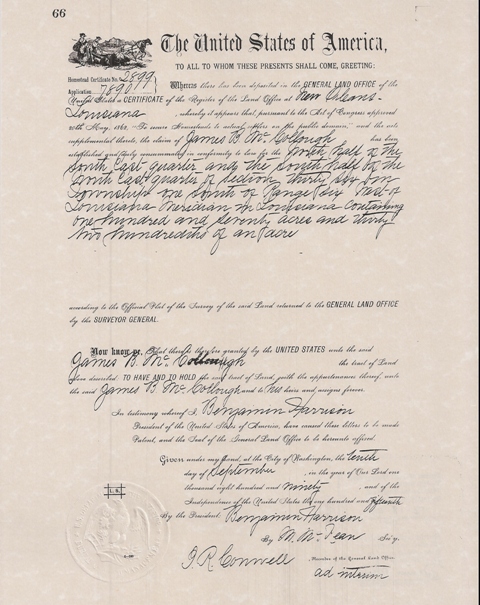 66
The United States of America,
TO ALL TO WHOM THESE PRESENTS SHALL COME, GREETING:
Homestead Certificate No. 2899
Application 7890
Whereas there has been deposited in the GENERAL LAND OFFICE of the
United States a CERTIFICATE of the Register of the Land Office at New Orleans
Louisiana, whereby it appears that, pursuant to the Act of Congress approved
20th May, 1862, "To secure Homesteads to actual settlers on the public domain," and the acts
supplemental thereto, the claim of James B. Mc. Collough has been
established and duly consummated in conformity to law for the North half of the
South East quarter and the South half of the
North East quarter of Section thirty six in
Township one South of Range six West of
Louisiana Meridian in Louisiana containing
one hundred and seventy acres and thirty
two hundredths of an acre
according to the Official Plat of the Survey of the said Land returned to the GENERAL LAND OFFICE
by the SURVEYOR GENERAL.
Now know ye, That there is therefore granted by the UNITED STATES unto the said
James B. Mc. Collough the tract of Land
above described: TO HAVE AND TO HOLD the said tract of Land, with the appurtenances thereof, unto
the said James B. Mc. Collough and to his heirs and assigns forever.
In testimony whereof I, Benjamin Harrison
President of the United States of America, have caused these letters to be made
Patent, and the Seal of the General Land Office to be hereunto affixed.
Given under my hand, at the City of Washington, the tenth
day of September, in the year of Our Lord one
thousand eight hundred and ninety, and of the
Independence of the United States the one hundred and fifteenth
L.S.
By the President: Benjamin Harrison
By M. McKean Sec'y.
J. R. Conwell
Recorder of the General Land Office
ad interim